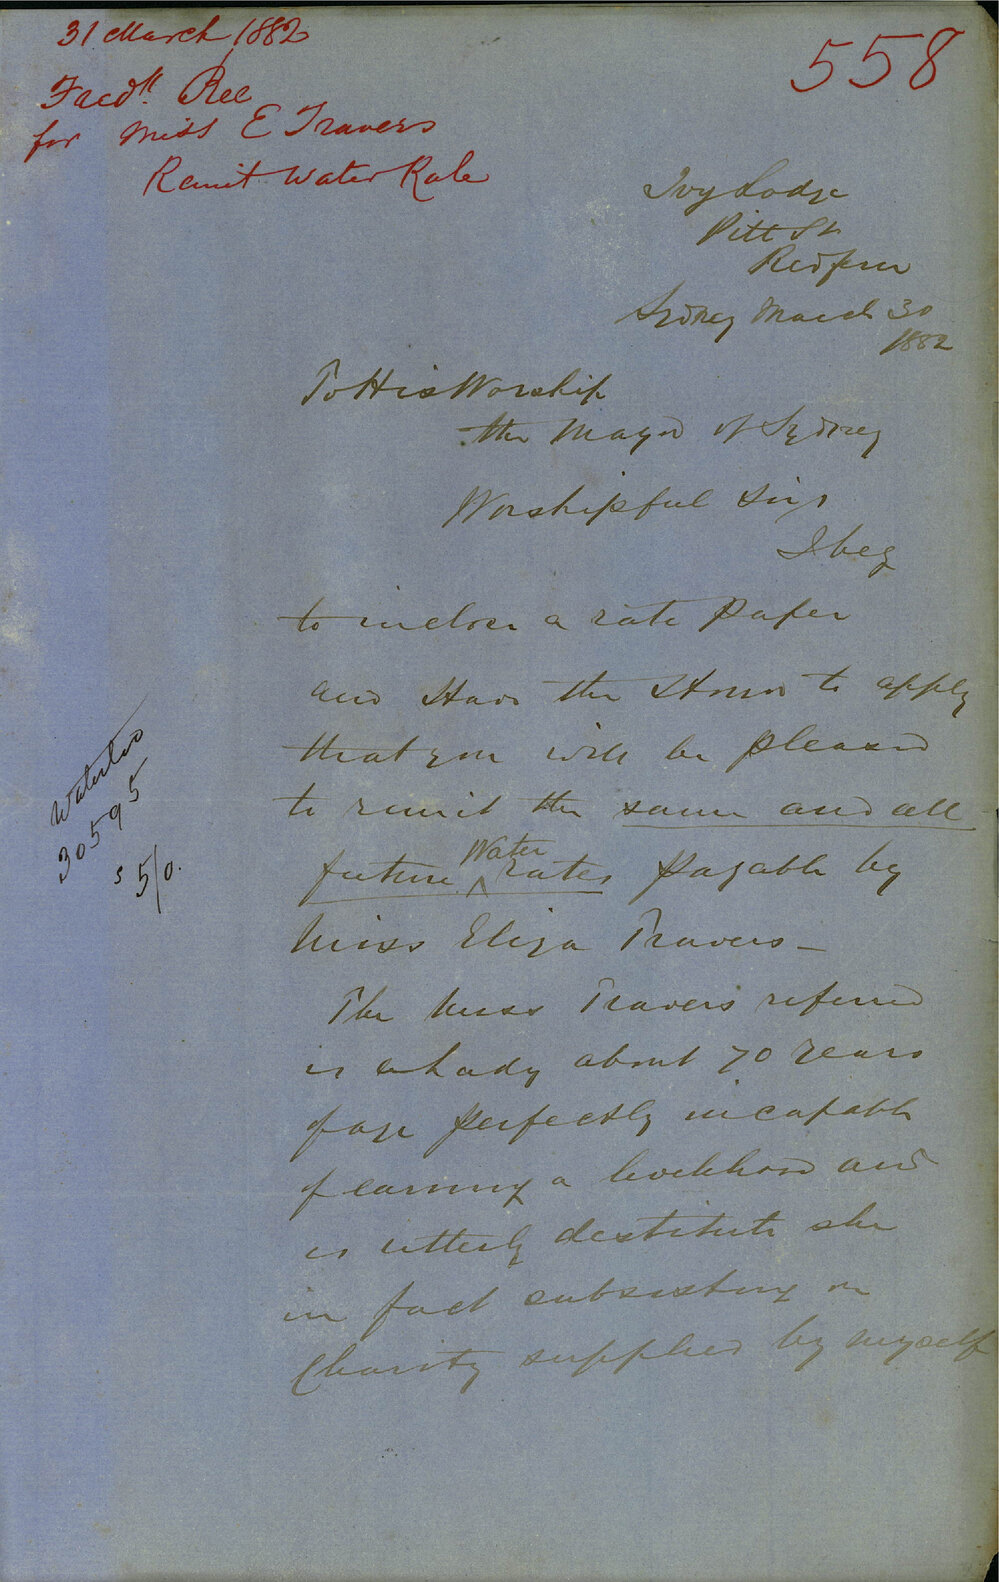 31 March 1882
558
Fredk. Ree
for Miss E Travers
Remit Water Rate
Ivy Lodge
Pitt St
Redfern
Sydney March 30
1882
To His Worship
the Mayor of Sydney
Worshipful Sir,
I beg
to inclose a rate paper
and Have the Honor to apply
that you will be pleased
to remit the same and all
future Water rates payable by
Miss Eliza Travers —
The Miss Travers referred
is a Lady about 70 years
of age perfectly incapable
of earning a livelihood and
is utterly destitute she
in fact subsisting on
Charity supplied by myself
Waterloo
30595
5/0.